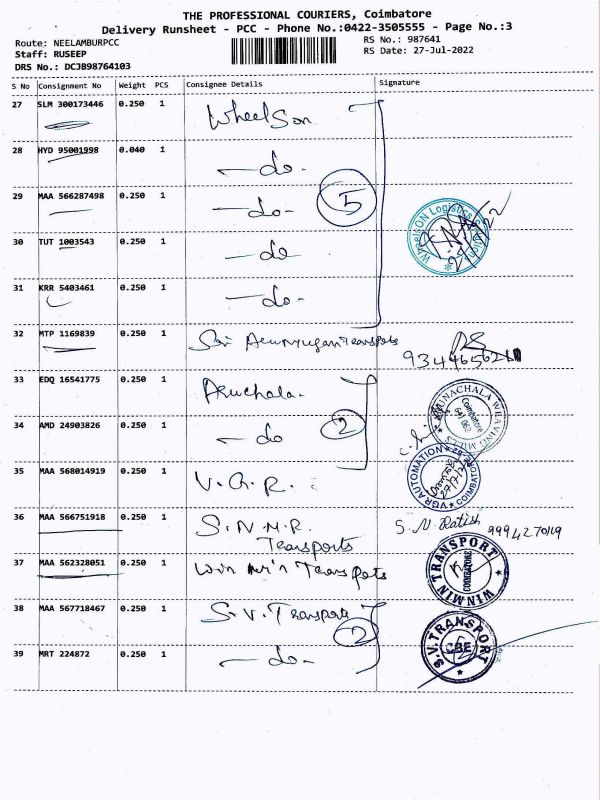 THE PROFESSIONAL COURIERS, Coimbatore
Delivery Runsheet - PCC - Phone No.:0422-3505555 - Page No.:3
Route: NEELAMBURPCC
RS No.: 987641
Staff: RUSEEP
RS Date: 27-Jul-2022
DRS No.: DCJB98764103
S No Consignment No Weight PCS Consignee Details Signature
27 SLM 300173446 0.250 1 Wheelson
28 HYD 95001998 0.040 1 -do-
29 MAA 566287498 0.250 1 -do- 5
WheelSON Logistics
30 TUT 1003543 0.250 1 -do
31 KRR 5403461 0.250 1 -do-
32 MTP 1169839 0.250 1 Sri Transports
33 EDQ 16541775 0.250 1 Aruchala.
ARUNACHALA WEAVING MILLS
Coimbatore
641 062
34 AMD 24903826 0.250 1 -do 2
35 MAA 568014919 0.250 1 V.G.R.
VGR AUTOMATION COIMBATORE
36 MAA 566751918 0.250 1 S.N.M.R. Transports
S.N. Ratish
37 MAA 562328051 0.250 1 Win Min Transpots
WINMIN TRANSPORT
COIMBATORE
38 MAA 567718467 0.250 1 S.V. Transports
S.V. TRANSPORT
CBE
39 MRT 224872 0.250 1 -do-